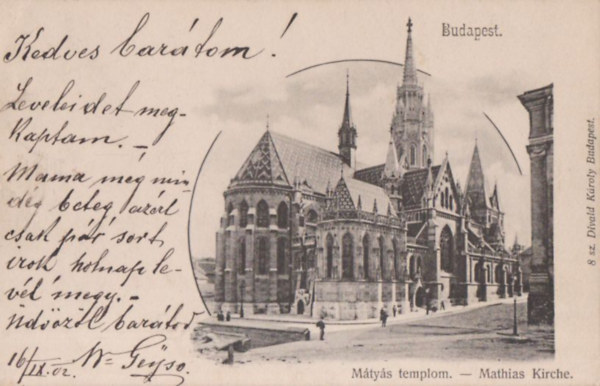 Kedves barátom!
Leveleidet meg-
kaptam. –
Mama még min-
dég beteg, azért
csak pár sort
irok holnap le-
vél megy. –
Üdvözöl barátod
16/IX. 02.
Budapest.
8 sz. Divald Károly Budapest.
Mátyás templom. — Mathias Kirche.